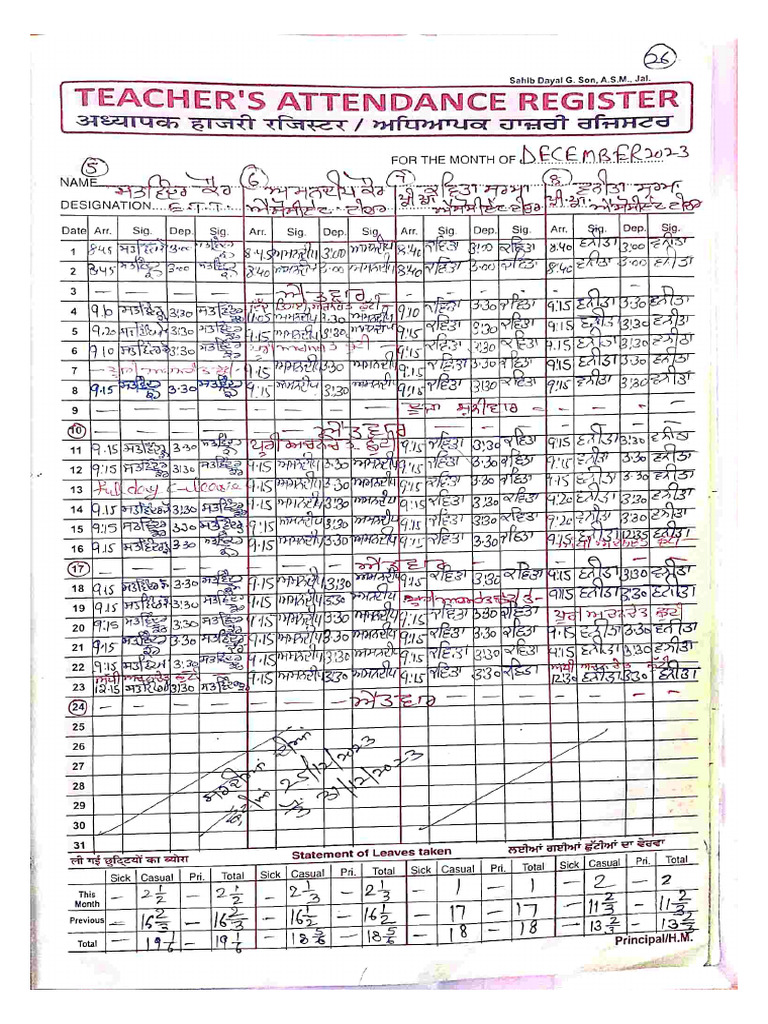 26
Sahib Dayal G. Son, A.S.M., Jal.
TEACHER'S ATTENDANCE REGISTER
अध्यापक हाजरी रजिस्टर / ਅਧਿਆਪਕ ਹਾਜ਼ਰੀ ਰਜਿਸਟਰ
FOR THE MONTH OF DECEMBER 2023
NAME 5 ਸਤਵਿੰਦਰ ਕੌਰ 6 ਅਮਨਦੀਪ ਕੌਰ 7 ਕਵਿਤਾ ਸ਼ਰਮਾ 8 ਵਨੀਤਾ ਸ਼ਰਮਾ
DESIGNATION E.T.T. ਐਸੋਸੀਏਟ ਟੀਚਰ ਐਸੋਸੀਏਟ ਟੀਚਰ ਐਸੋਸੀਏਟ ਟੀਚਰ
Date Arr. Sig. Dep. Sig. Arr. Sig. Dep. Sig. Arr. Sig. Dep. Sig. Arr. Sig. Dep. Sig.
1 8.45 ਸਤਵਿੰਦਰ 3:00 ਸਤਵਿੰਦਰ 8.45 ਅਮਨਦੀਪ 3:00 ਅਮਨਦੀਪ 8:40 ਕਵਿਤਾ 3:00 ਕਵਿਤਾ 8.40 ਵਨੀਤਾ 3:00 ਵਨੀਤਾ
2 8.45 ਸਤਵਿੰਦਰ 3:00 ਸਤਵਿੰਦਰ 8.40 ਅਮਨਦੀਪ 3:00 ਅਮਨਦੀਪ 8:40 ਕਵਿਤਾ 3:00 ਕਵਿਤਾ 8.40 ਵਨੀਤਾ 3:00 ਵਨੀਤਾ
3 ਐਤਵਾਰ
4 9.10 ਸਤਵਿੰਦਰ 3:30 ਸਤਵਿੰਦਰ ਅਮਨਦੀਪ 3.30 ਅਮਨਦੀਪ 9:10 ਕਵਿਤਾ 3.30 ਕਵਿਤਾ 9:15 ਵਨੀਤਾ 3.30 ਵਨੀਤਾ
5 9.20 ਸਤਵਿੰਦਰ 3:30 ਸਤਵਿੰਦਰ 9:15 ਅਮਨਦੀਪ 3:30 ਅਮਨਦੀਪ 9:15 ਕਵਿਤਾ 3:30 ਕਵਿਤਾ 9:15 ਵਨੀਤਾ 3:30 ਵਨੀਤਾ
6 9.10 ਸਤਵਿੰਦਰ 3:30 ਸਤਵਿੰਦਰ 9:15 ਕਵਿਤਾ 3:30 ਕਵਿਤਾ 9:15 ਵਨੀਤਾ 3:30 ਵਨੀਤਾ
7 9.15 ਅਮਨਦੀਪ 3:30 ਅਮਨਦੀਪ 9:15 ਕਵਿਤਾ 3:30 ਕਵਿਤਾ 9:15 ਵਨੀਤਾ 3:30 ਵਨੀਤਾ
8 9.15 ਸਤਵਿੰਦਰ 3.30 ਸਤਵਿੰਦਰ 9:15 ਅਮਨਦੀਪ 3:30 ਅਮਨਦੀਪ 9:15 ਕਵਿਤਾ 3:30 ਕਵਿਤਾ 9:15 ਵਨੀਤਾ 3:30 ਵਨੀਤਾ
9 ਦੂਜਾ ਸ਼ਨੀਵਾਰ
10 ਐਤਵਾਰ
11 9.15 ਸਤਵਿੰਦਰ 3.30 ਸਤਵਿੰਦਰ ਪੂਰੀ ਅਚਨਚੇਤ ਛੁੱਟੀ 9:15 ਕਵਿਤਾ 3:30 ਕਵਿਤਾ 9.15 ਵਨੀਤਾ 3:30 ਵਨੀਤਾ
12 9:15 ਸਤਵਿੰਦਰ 3:30 ਸਤਵਿੰਦਰ 9.15 ਅਮਨਦੀਪ 3:30 ਅਮਨਦੀਪ 9:15 ਕਵਿਤਾ 3:30 ਕਵਿਤਾ 9:15 ਵਨੀਤਾ 3:30 ਵਨੀਤਾ
13 full day c-leave 9.15 ਅਮਨਦੀਪ 3:30 ਅਮਨਦੀਪ 9:15 ਕਵਿਤਾ 3:30 ਕਵਿਤਾ 9.15 ਵਨੀਤਾ 3:30 ਵਨੀਤਾ
14 9:15 ਸਤਵਿੰਦਰ 3:30 ਸਤਵਿੰਦਰ 9.15 ਅਮਨਦੀਪ 3:30 ਅਮਨਦੀਪ 9:15 ਕਵਿਤਾ 3:30 ਕਵਿਤਾ 9:20 ਵਨੀਤਾ 3:30 ਵਨੀਤਾ
15 9:15 ਸਤਵਿੰਦਰ 3:30 ਸਤਵਿੰਦਰ 9:15 ਅਮਨਦੀਪ 3:30 ਅਮਨਦੀਪ 9:15 ਕਵਿਤਾ 3:30 ਕਵਿਤਾ 9:20 ਵਨੀਤਾ 3:30 ਵਨੀਤਾ
16 9.15 ਸਤਵਿੰਦਰ 3:30 ਸਤਵਿੰਦਰ 9.15 ਅਮਨਦੀਪ 3:30 ਅਮਨਦੀਪ 9:15 ਕਵਿਤਾ 3:30 ਕਵਿਤਾ 9:15 ਵਨੀਤਾ 12:35 ਵਨੀਤਾ
17 ਐਤਵਾਰ
18 9.15 ਸਤਵਿੰਦਰ 3.30 ਸਤਵਿੰਦਰ 9.15 ਅਮਨਦੀਪ 3:30 ਅਮਨਦੀਪ 9:15 ਕਵਿਤਾ 3:30 ਕਵਿਤਾ 9:15 ਵਨੀਤਾ 3:30 ਵਨੀਤਾ
19 9.15 ਸਤਵਿੰਦਰ 3:30 ਸਤਵਿੰਦਰ 9.15 ਅਮਨਦੀਪ 3:30 ਅਮਨਦੀਪ 9:15 ਵਨੀਤਾ 3:30 ਵਨੀਤਾ
20 9:15 ਸਤਵਿੰਦਰ 3:30 ਸਤਵਿੰਦਰ 9.15 ਅਮਨਦੀਪ 3:30 ਅਮਨਦੀਪ 9:15 ਕਵਿਤਾ 3:30 ਕਵਿਤਾ ਪੂਰੀ ਅਚਨਚੇਤ ਛੁੱਟੀ
21 9:15 ਸਤਵਿੰਦਰ 3.30 ਸਤਵਿੰਦਰ 9.15 ਅਮਨਦੀਪ 3:30 ਅਮਨਦੀਪ 9:15 ਕਵਿਤਾ 3:30 ਕਵਿਤਾ 9.15 ਵਨੀਤਾ 3:30 ਵਨੀਤਾ
22 9:15 ਸਤਵਿੰਦਰ 3:30 ਸਤਵਿੰਦਰ 9.15 ਅਮਨਦੀਪ 3:30 ਅਮਨਦੀਪ 9:15 ਕਵਿਤਾ 3:30 ਕਵਿਤਾ 9:15 ਵਨੀਤਾ 3:30 ਵਨੀਤਾ
ਅੱਧੀ ਅਚਨਚੇਤ ਛੁੱਟੀ ਅੱਧੀ ਅਚਨਚੇਤ ਛੁੱਟੀ
23 12:15 ਸਤਵਿੰਦਰ 3:30 ਸਤਵਿੰਦਰ 9.15 ਅਮਨਦੀਪ 3:30 ਅਮਨਦੀਪ 9:15 ਕਵਿਤਾ 3:30 ਕਵਿਤਾ 12:30 ਵਨੀਤਾ 3:30 ਵਨੀਤਾ
24 ਐਤਵਾਰ
25
26
27
28
29
30
31
ਸਰਦੀਆਂ ਦੀਆਂ
ਛੁੱਟੀਆਂ 25/12/2023
ਤੋਂ 31/12/2023
ली गई छुट्टियों का ब्योरा Statement of Leaves taken ਲਈਆਂ ਗਈਆਂ ਛੁੱਟੀਆਂ ਦਾ ਵੇਰਵਾ
Sick Casual Pri. Total Sick Casual Pri. Total Sick Casual Pri. Total Sick Casual Pri. Total
This Month – 2 1/2 – 2 1/2 – 2 1/3 – 2 1/3 – 1 – 1 – 2 – 2
Previous – 16 2/3 – 16 2/3 – 16 1/2 – 16 1/2 – 17 – 17 – 11 2/3 – 11 2/3
Total – 19 1/6 – 19 1/6 – 18 5/6 – 18 5/6 – 18 – 18 – 13 2/3 – 13 2/3
Principal/H.M.